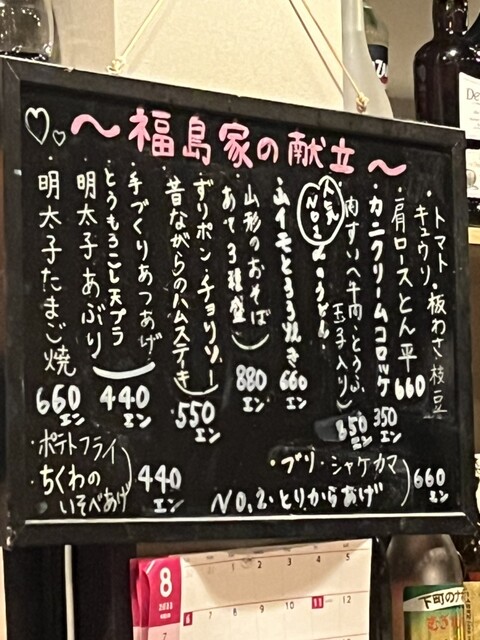 ～福島家の献立～
・トマト・板わさ 枝豆
キュウリ
・肩ロースとん平 660
・カニクリームコロッケ 350エン
肉すい(牛肉・とうふ
玉子入り) 850エン
人気
NO.1
山イモとろろ焼き 660エン
・山形のおそば
あて3種盛 880エン
ずりポン・チョリソー
昔ながらのハムステーキ 550エン
・手づくりあつあげ
とうもろこし天プラ
・明太子あぶり 440エン
・明太子たまご焼 660エン
・ポテトフライ
・ちくわの
いそべあげ 440エン
・ブリ・シャケカマ
NO,2・とりからあげ 660エン
8
1 2 3 4 5
6 7 8 9 10 11 12
下町の